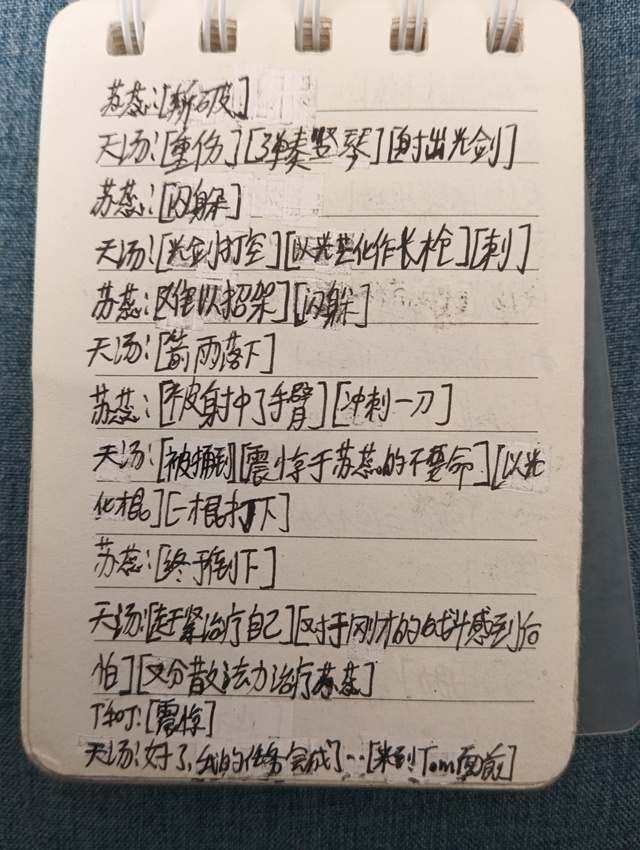 苏蕊:[斩破]
天汤:[重伤][弹奏竖琴][射出光剑]
苏蕊:[闪躲]
天汤:[光剑打空][以光芒化作长枪][刺]
苏蕊:[难以招架][闪躲]
天汤:[箭雨落下]
苏蕊:[被射中了手臂][冲刺一刀]
天汤:[被捅到][震惊于苏蕊的不要命][以光
化棍][一棍打下]
苏蕊:[终于倒下]
天汤:[赶紧治疗自己][对于刚才的战斗感到后
怕][又分散法力治疗苏蕊]
[震惊]
天汤:好了,我的任务完成了…[来到Tom面前]